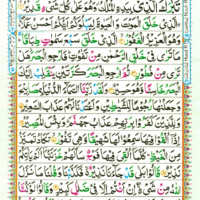 تَبٰرَكَ الَّذِیْ بِیَدِهِ الْمُلْكُ وَهُوَ عَلٰی كُلِّ شَیْءٍ قَدِیْرُ
الَّذِیْ خَلَقَ الْمَوْتَ وَالْحَیٰوةَ لِیَبْلُوَكُمْ اَیُّكُمْ اَحْسَنُ عَمَلًا
وَهُوَ الْعَزِیْزُ الْغَفُوْرُ الَّذِیْ خَلَقَ سَبْعَ سَمٰوٰتٍ طِبَاقًا
مَا تَرٰی فِیْ خَلْقِ الرَّحْمٰنِ مِنْ تَفٰوُتٍ فَارْجِعِ الْبَصَرَ هَلْ
تَرٰی مِنْ فُطُوْرٍ ثُمَّ ارْجِعِ الْبَصَرَ كَرَّتَیْنِ یَنْقَلِبْ
اِلَیْكَ الْبَصَرُ خَاسِئًا وَّهُوَ حَسِیْرٌ وَلَقَدْ زَیَّنَّا السَّمَآءَ الدُّنْیَا
بِمَصَابِیْحَ وَجَعَلْنٰهَا رُجُوْمًا لِّلشَّیٰطِیْنِ وَاَعْتَدْنَا لَهُمْ عَذَابَ السَّعِیْرِ
وَلِلَّذِیْنَ كَفَرُوْا بِرَبِّهِمْ عَذَابُ جَهَنَّمَ وَبِئْسَ الْمَصِیْرُ
اِذَآ اُلْقُوْا فِیْهَا سَمِعُوْا لَهَا شَهِیْقًا وَّهِیَ تَفُوْرُ تَكَادُ تَمَیَّزُ
مِنَ الْغَیْظِ كُلَّمَآ اُلْقِیَ فِیْهَا فَوْجٌ سَاَلَهُمْ خَزَنَتُهَآ اَلَمْ یَاْتِكُمْ
نَذِیْرٌ قَالُوْا بَلٰی قَدْ جَآءَنَا نَذِیْرٌ فَكَذَّبْنَا وَقُلْنَا مَا نَزَّلَ
اللّٰهُ مِنْ شَیْءٍ اِنْ اَنْتُمْ اِلَّا فِیْ ضَلٰلٍ كَبِیْرٍ وَقَالُوْا لَوْ كُنَّا